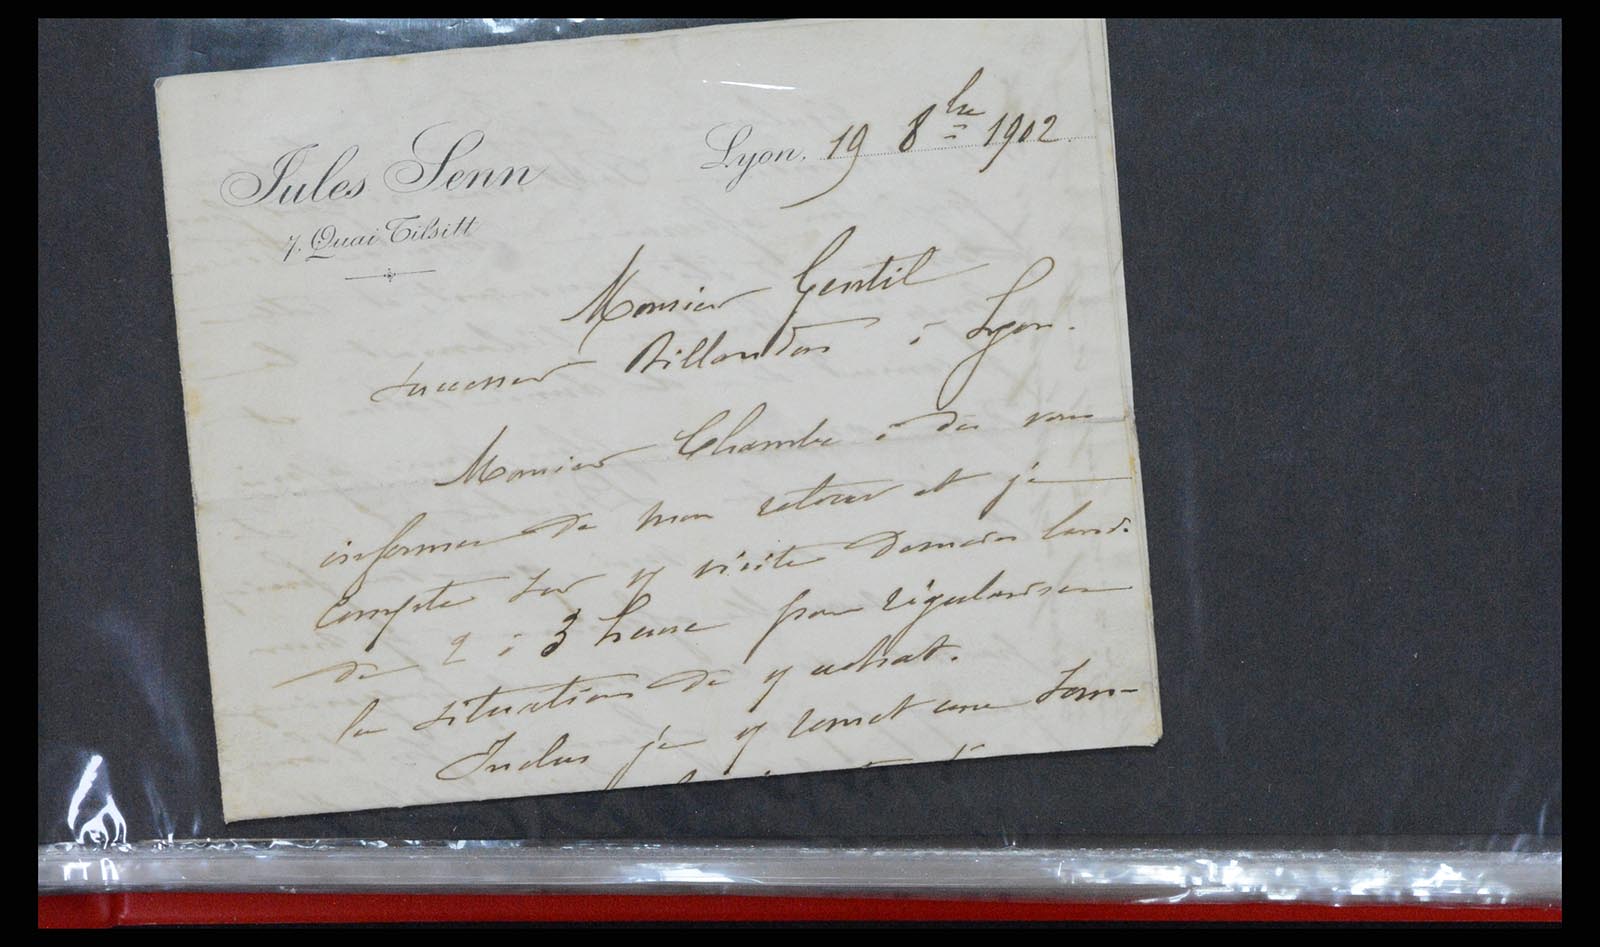 Jules Senn
7. Quai Tilsitt
Lyon, 19 8bre 1902
Monsieur Gentil
successeur à Lyon.
Monsieur Chambe à dû vous
informer de mon retour et je
compte sur v/ visite demain lundi
de 2 à 3 heure pour régulariser
la situation de v/ achat.
Inclus je v/ remet une